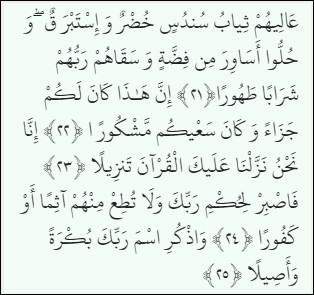 عَالِيهُمْ ثِيابُ سُندُسٍ خُضْرٌ وَ إِسْتَبْرَ قٌ ۖ وَ
حُلُّوا أَسَاوِرَ مِن فِضَّةٍ وَ سَقَاهُمْ رَبُّهُمْ
شَرَابًا طَهُورًا ﴿٢١﴾ إِنَّ هَـٰذَا كَانَ لَكُمْ
جَزَاءً وَ كَانَ سَعْيِكُم مَّشْكُورً ا ﴿٢٢﴾ إِنَّا
نَحْنُ نَزَّلْنَا عَلَيكَ الْقُرْآنَ تَنزِيلًا ﴿٢٣﴾
فَاصْبِرْ لِحُكْمِ رَبِّكَ وَلَا تُطِعْ مِنْهُمْ آثِمًا أَوْ
كَفُورًا ﴿٢٤﴾ وَاذْكُرِ اسْمَ رَبِّكَ بُكْرَةً
وَأَصِيلًا ﴿٢٥﴾